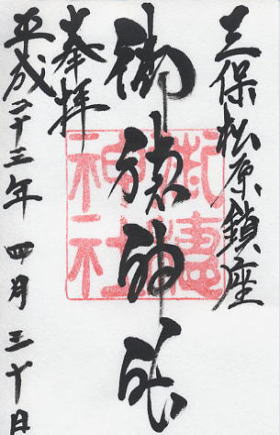 三保松原鎮座
御穂神社
奉拝
平成二十三年 四月 三十日
御穂神社